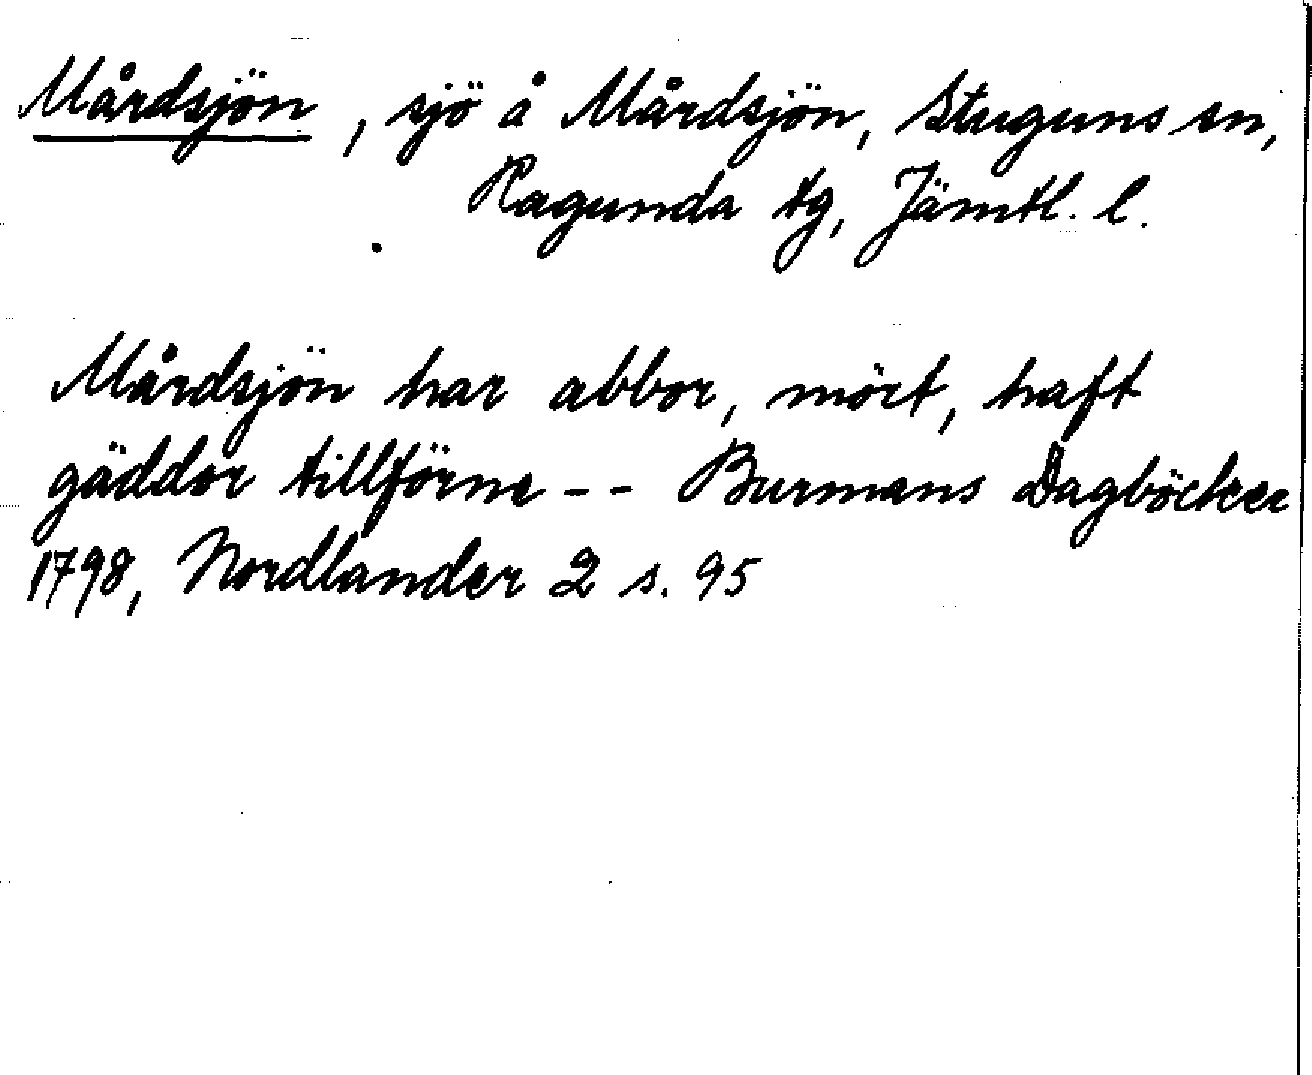 Mårdsjön, sjö å Mårdsjön, Stuguns sn,
Ragunda tg, Jämtl. l.
Mårdsjön har abbor, mört, haft
gäddor tillförne - - Burmans Dagböcker
1798, Nordlander 2 s. 95